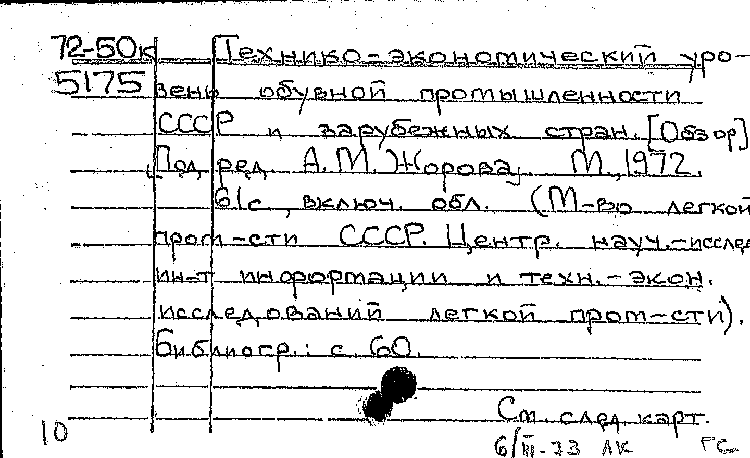 72-50к Технико-экономический уро-
5175 вень обувной промышленности
СССР и зарубежных стран. [Обзор]
Под ред. А.М. Жорова. М., 1972.
61с., включ. обл. (М-во легкой
пром-сти СССР. Центр. науч.-исслед
ин-т информации и техн.-экон.
исследований легкой пром-сти).
Библиогр.: с. 60.
См. след. карт.
10 6/III-73 ЛК ГС